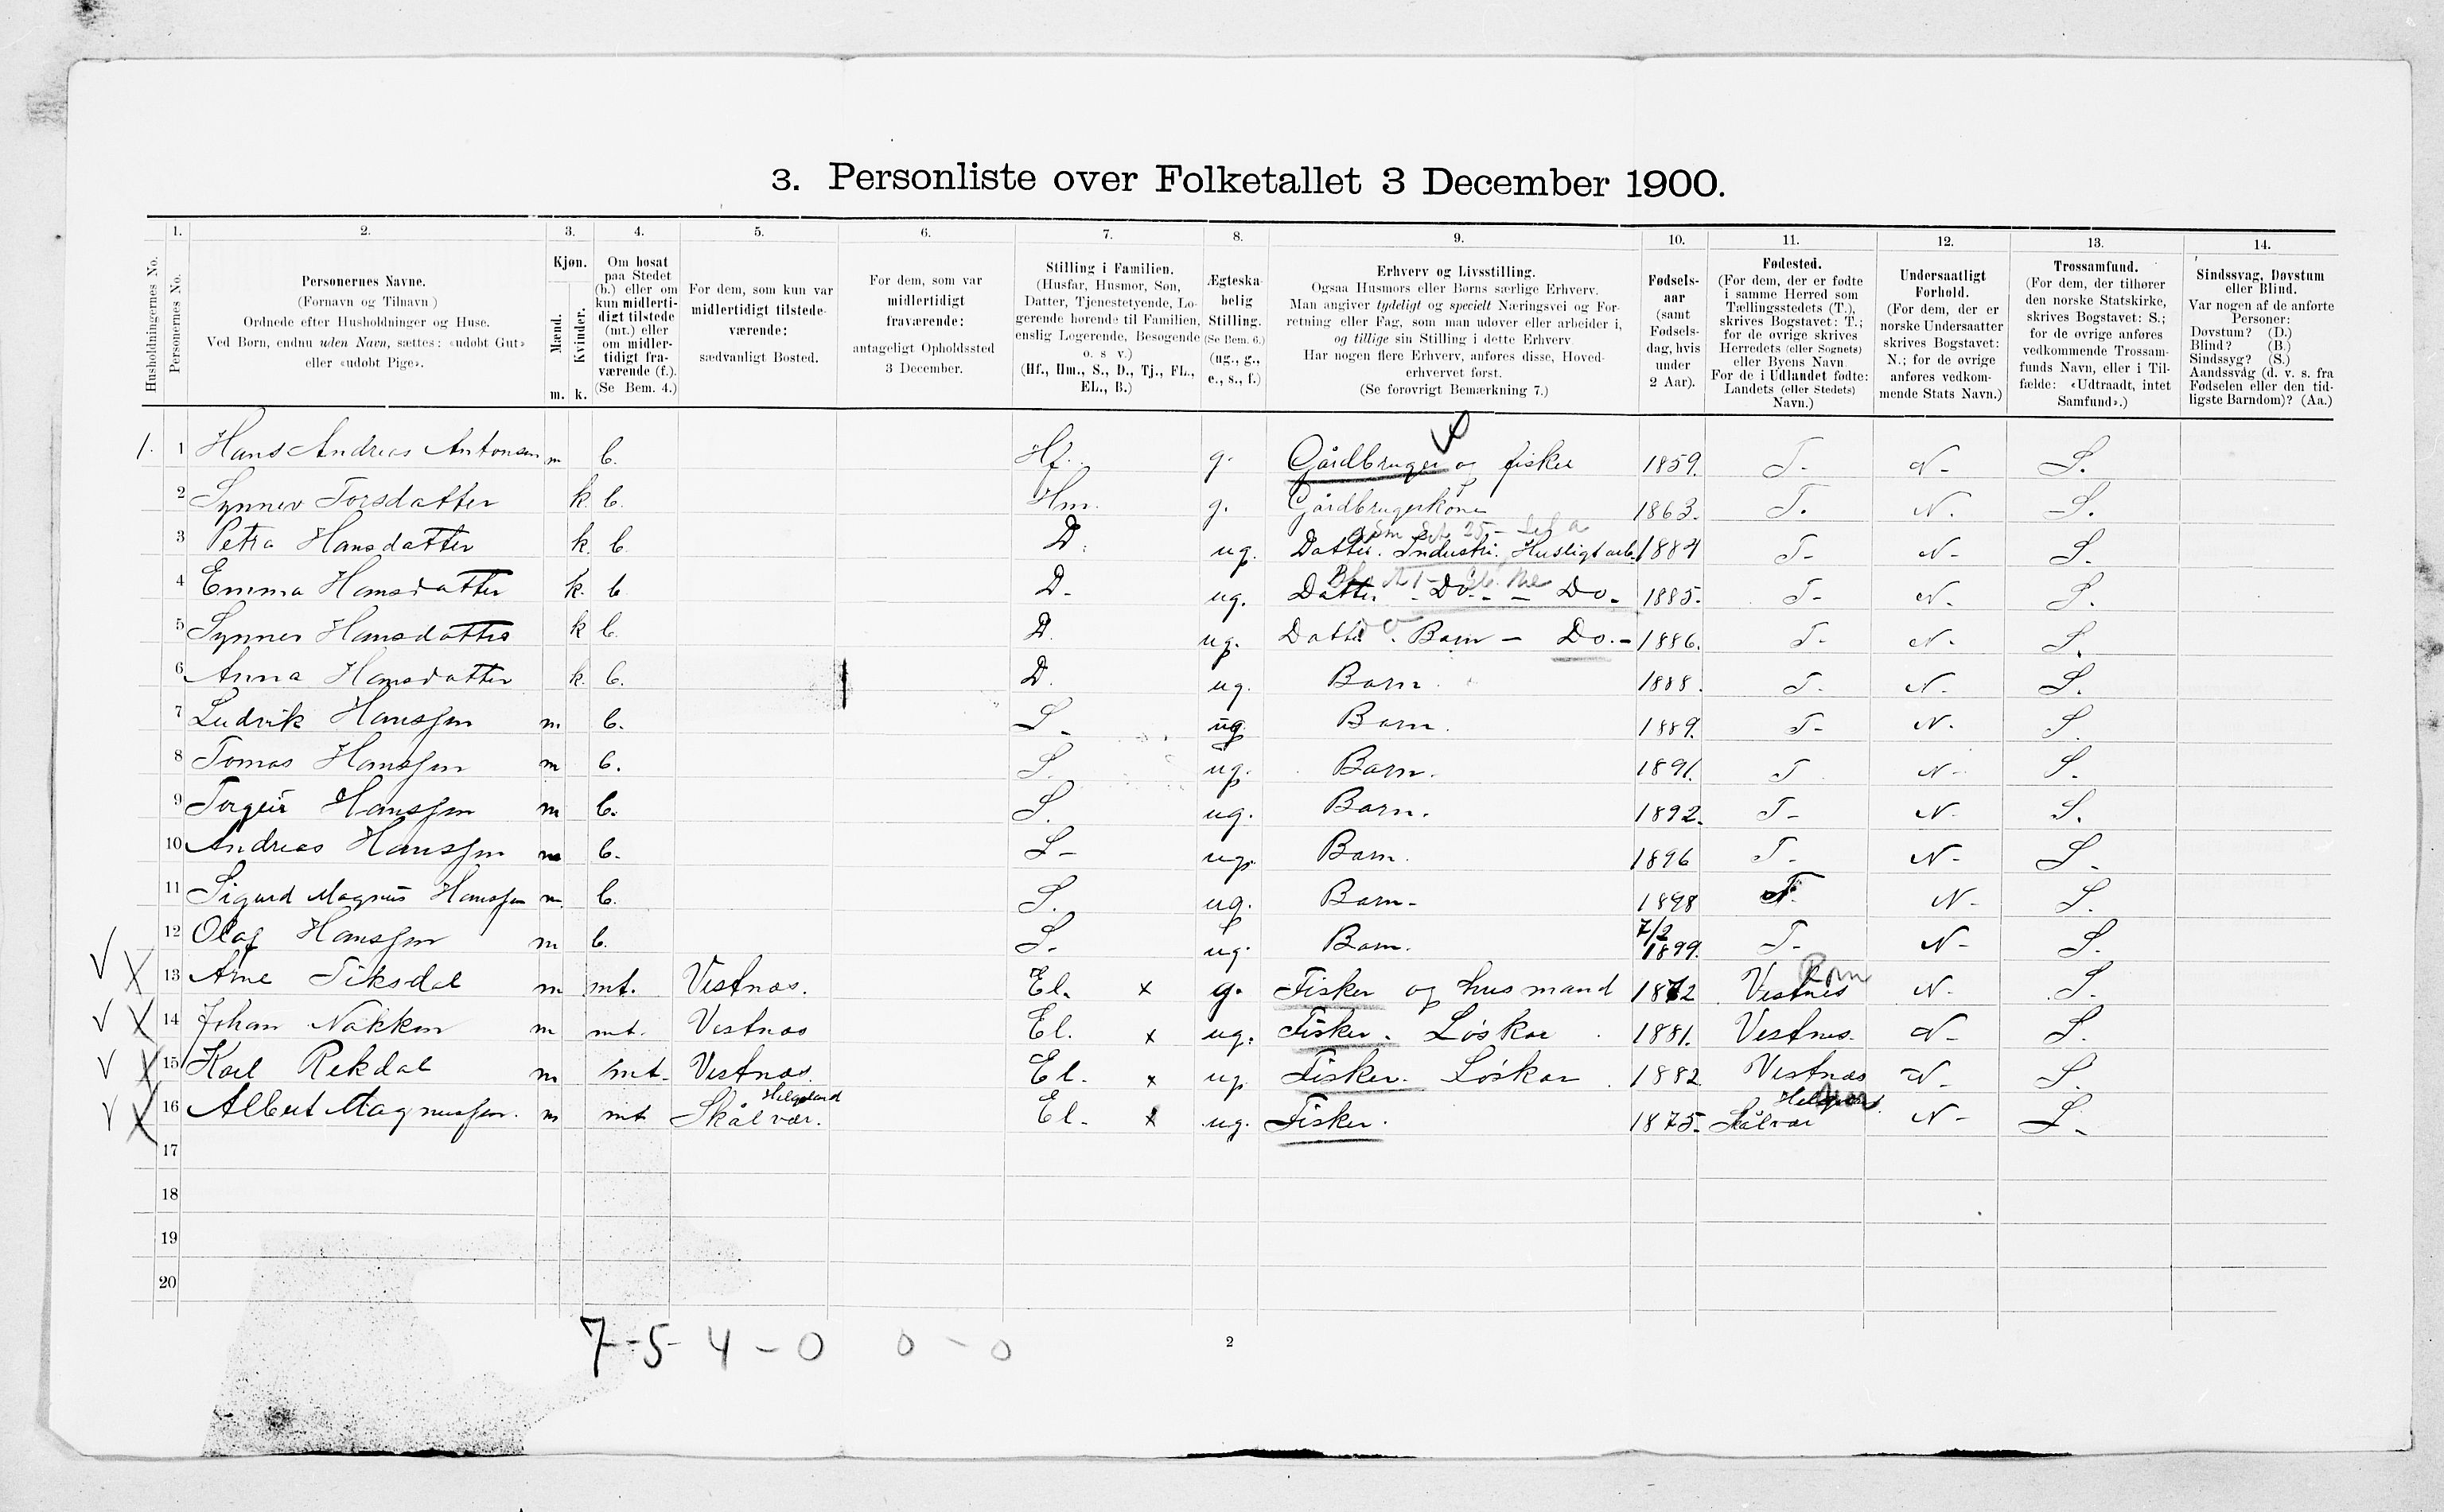 3. Personliste over Folketallet 3 December 1900.
1. 2. 3. 4. 5. 6. 7. 8. 9. 10. 11. 12. 13. 14.
Husholdningernes No.
Personernes No.
Personernes Navne.
(Fornavn og Tilnavn)
Ordnede efter Husholdninger og Huse.
Ved Børn, endnu uden Navn, sættes: «udøbt Gut»
eller «udøbt Pige».
Kjøn.
Mænd.
Kvinder.
m. k.
Om bosat
paa Stedet
(b.) eller om
kun midlerti-
digt tilstede
(mt.) eller
om midler-
tidigt fra-
værende (f.).
(Se Bem. 4.)
For dem, som kun var
midlertidigt tilstede-
værende:
sædvanligt Bosted.
For dem, som var
midlertidigt
fraværende:
antageligt Opholdssted
3 December.
Stilling i Familien.
(Husfar, Husmor, Søn,
Datter, Tjenestetyende, Lo-
gerende hørende til Familien,
enslig Logerende, Besøgende
o. s v.)
(Hf., Hm., S., D., Tj., FL.,
EL., B.)
Ægteska-
belig
Stilling.
(Se Bem. 6.)
(ug., g.,
e., s., f.)
Erhverv og Livsstilling.
Ogsaa Husmors eller Børns særlige Erhverv.
Man angiver tydeligt og specielt Næringsvei og For-
retning eller Fag, som man udøver eller arbeider i,
og tillige sin Stilling i dette Erhverv
Har nogen flere Erhverv, anføres disse, Hoved-
erhvervet først.
(Se forøvrigt Bemærkning 7.)
Fødsels-
aar
(samt
Fødsels-
dag, hvis
under
2 Aar).
Fødested.
(For dem, der er fødte
i samme Herred som
Tællingsstedets (T.),
skrives Bogstavet: T.;
for de øvrige skrives
Herredets (eller Sognets)
eller Byens Navn
For de i Udlandet fødte:
Landets (eller Stedets)
Navn.)
Undersaatligt
Forhold.
(For dem, der er
norske Undersaatter
skrives Bogstavet:
N.; for de øvrige
anføres vedkom-
mende Stats Navn.)
Trossamfund.
(For dem, der tilhører
den norske Statskirke,
skrives Bogstavet: S.;
for de øvrige anføres
vedkommende Trossam-
funds Navn, eller i Til-
fælde: «Udtraadt, intet
Samfund».)
Sindssvag, Døvstum
eller Blind.
Var nogen af de anførte
Personer:
Døvstum? (D.)
Blind? (B.)
Sindssyg? (S.)
Aandssvag (d. v. s. fra
Fødselen eller den tid-
ligste Barndom)? (Aa.)
1. 1 Hans Andreas Antonsen m b. Hf. g. Gårdbruger og fisker 1859. T- N- S.
2 Synnev Torsdatter k. b. Hm. g. Gårdbrugerkone 1863. T. N. S.
3 Petra Hansdatter k. b. D. ug. Datter. Industri. Husligt arb. 1884 T- N- S.
4 Emma Hansdatter k. b. D- ug. Datter - Do.- - Do. 1885. T- N- S.
5 Synnev Hansdatter k b. D. ug. Datter. Barn - Do.- 1886. T- N- S.
6 Anna Hansdatter k. b. D. ug. Barn. 1888. T- N- S.
7 Ludvik Hanssen m b. S- ug Barn. 1889. T- N- S.
8 Tomas Hanssen m b. S. ug. Barn. 1891. T N- S.
9 Torgeir Hanssen m b. S. ug. Barn. 1892. T- N- S.
10 Andreas Hanssen m b. S- ug. Barn. 1896 T- N- S-
11 Sigurd Magnus Hanssen m. b. S. ug. Barn- 1898 T. N- S.
12 Olaf Hanssen m b. S. ug. Barn. 7/2 1899. T- N- S.
V X 13 Arne Tiksdal m mt. Vestnæs. El. x g. Fisker og husmand 1872 Vestnes N- S.
V X 14 Johan Nakken m mt. Vestnæs El. x ug. Fisker. Løskar 1881. Vestnes. N- S.
V X 15 Karl Rekdal m mt. Vestnæs. El. x ug Fisker. Løskar 1882 Vestnæs N- S.
V X 16 Albert Magnussen. m mt Skålvær. Helgeland El. x ug. Fisker. 1875. Skålvær Helgeland. N- S-
17
18
19
20
7-5-4-0 0-0
2